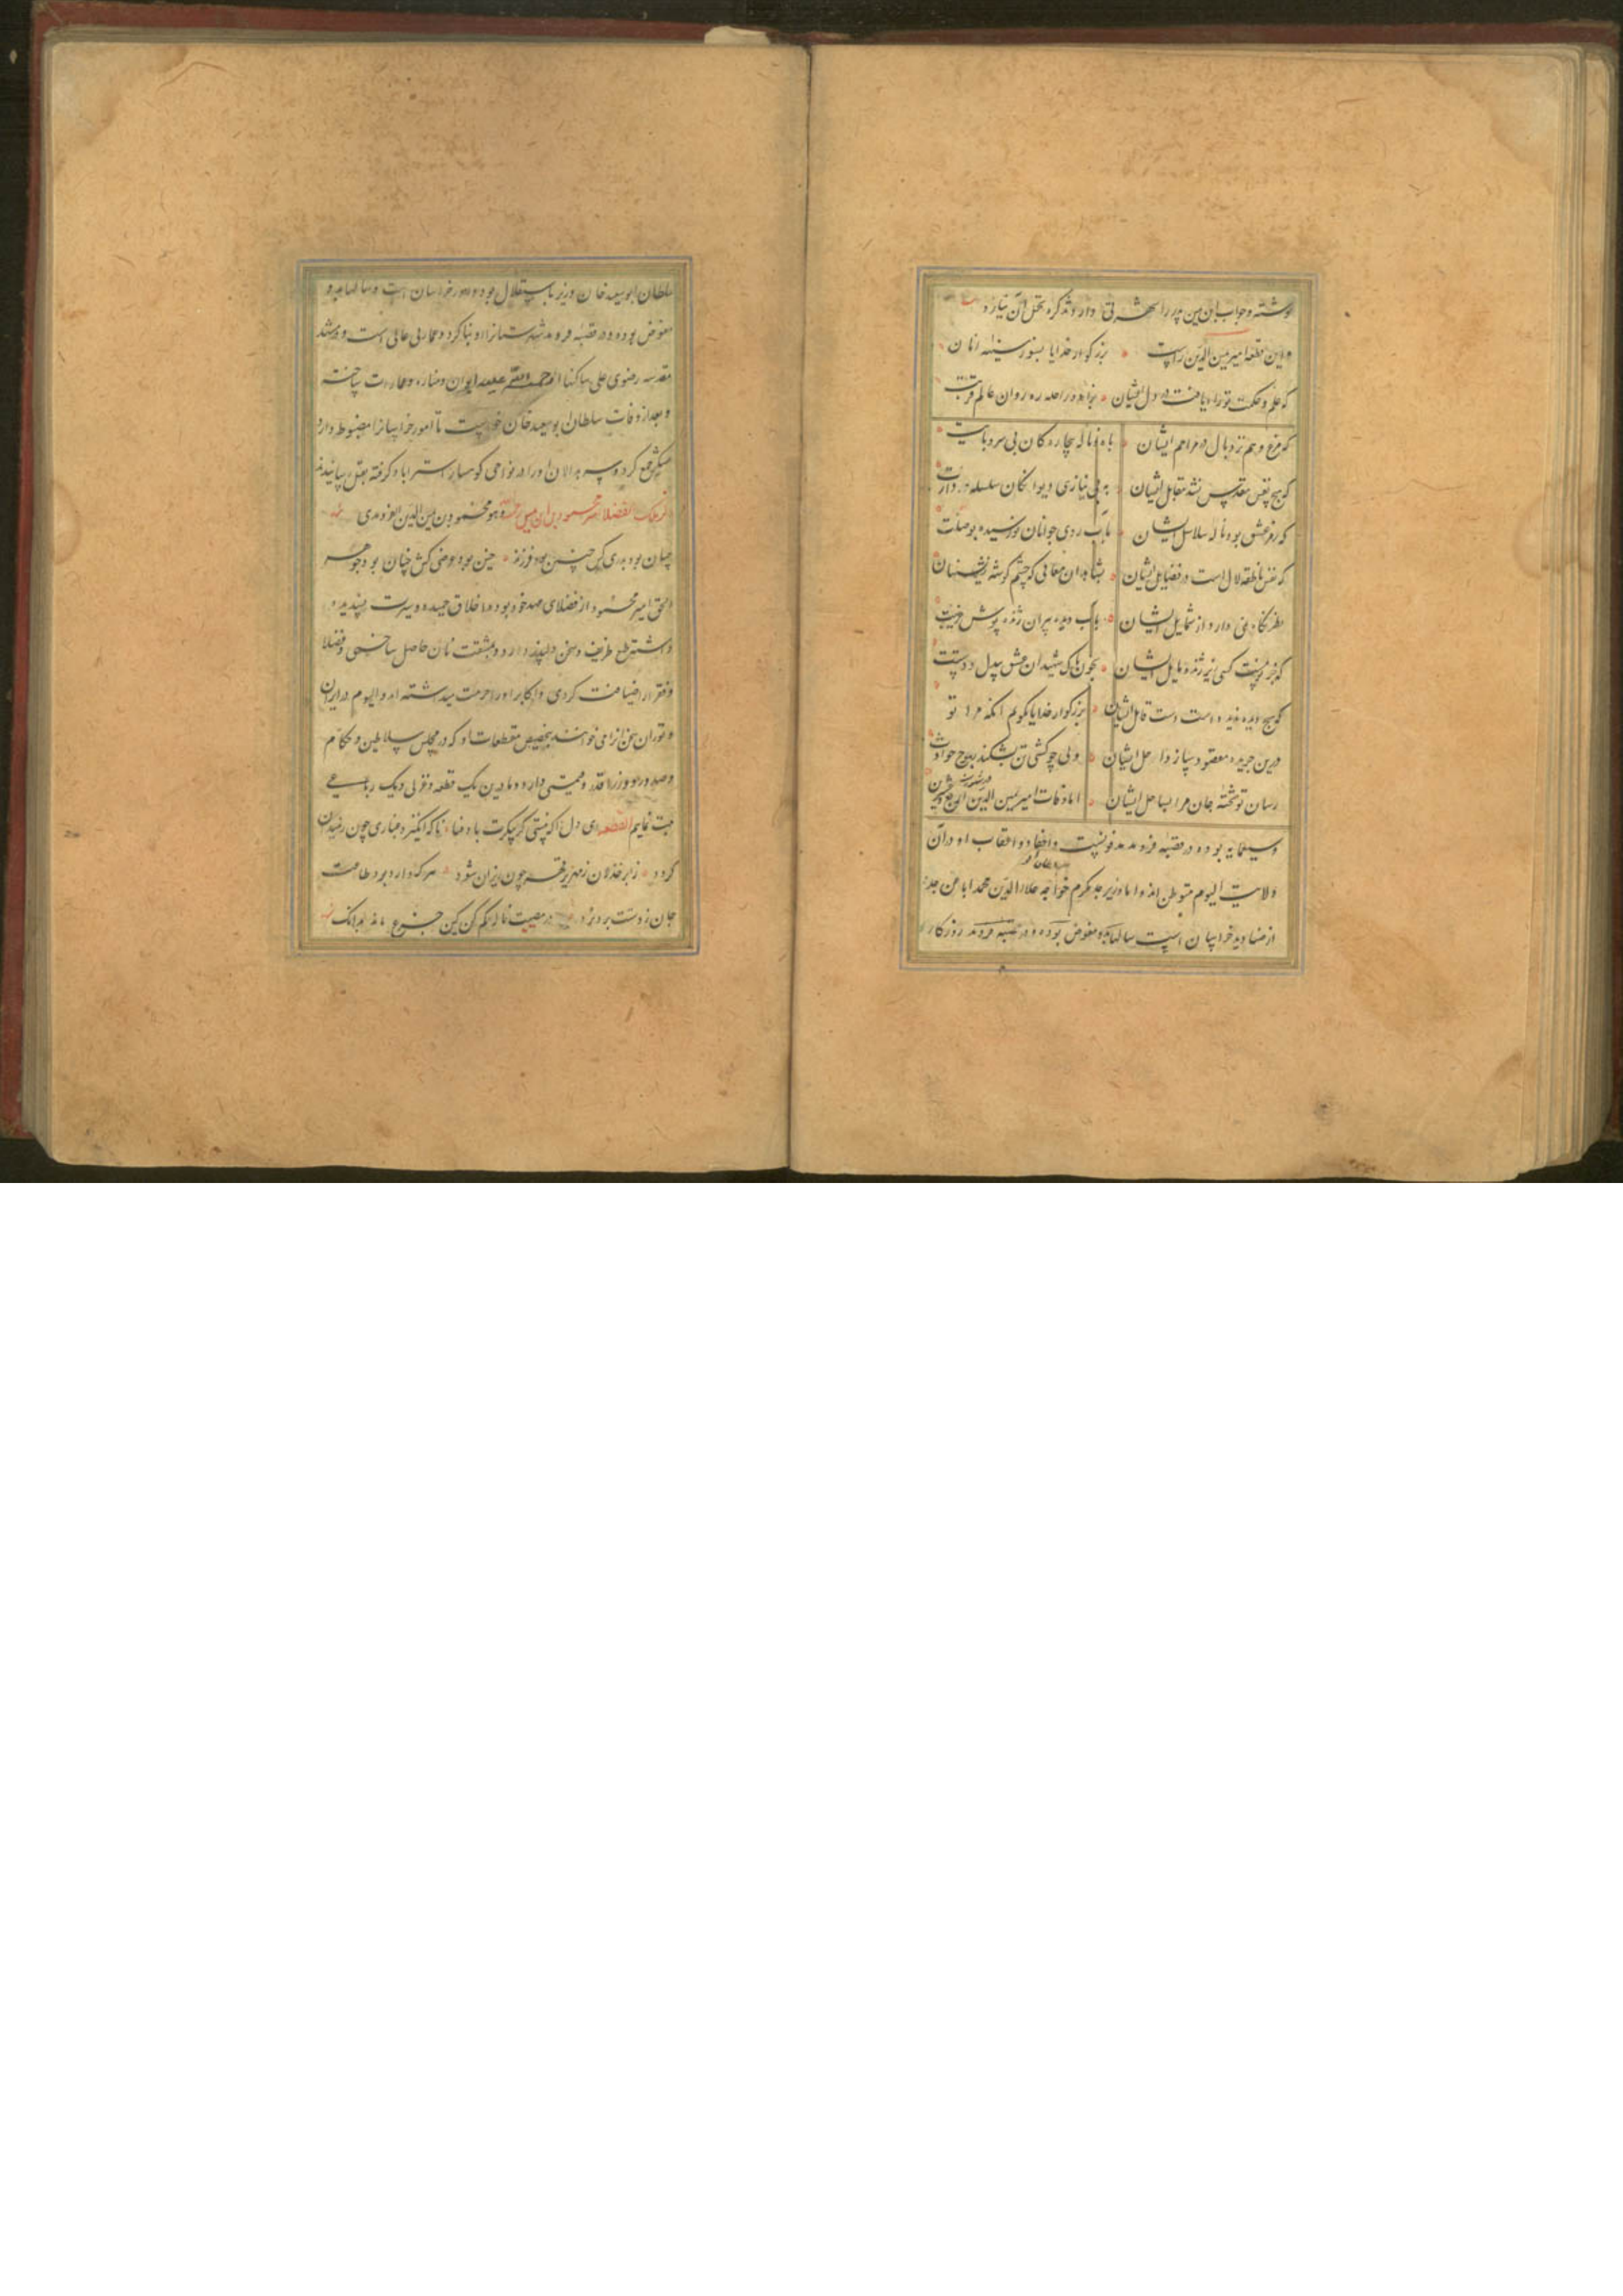 نوشته و جواب ابن یمین پدر را شهرتی دارد و تذکره تحمل آن نیارد
و این قطعه امیر یمین الدین راست بزرگوار خدایا بسوز سینه آنان
که علم و حکمت تو راه یافت در دل ایشان براه راحله ره روان عالم قربت
که مرغ وهم نزد بال در مراحم ایشان بآه و ناله بیچارگان بی سر و پایت
که هیچ نفس مقدس نشد مقابل ایشان به بی نیازی دیوانگان سلسله دارت
که رمز عشق بود ناله سلاسل ایشان بآب روی جوانان نورسیده بوصلت
که نفس ناطقه لال است در فضایل ایشان بشاهدان معانی که چشم گوشه نشینان
نظر نگاه نمی دارد از شمایل ایشان بآب دیده پیران ژنده پوش غریبت
که جز تو نیست کسی زیر ژنده مایل ایشان بخون پاک شهیدان عشق بیدل دوستت
که هیچ دیده ندیده است دست قاتل ایشان بزرگوار خدایا بگویم آنکه مرا تو
درین جریده معقود سپاز داخل ایشان ولی چو کشتی تن بشکند بموج حوادث
رسان تو تخته جان مرا بساحل ایشان اما وفات امیر یمین الدین در شهور سنه اربع و عشرین
و سبعمایه بوده در قصبه فریومد مدفونست و احفاد و اعقاب او در آن
ولایت الیوم متوطن اند و اما وزیر جد مکرم خواجه علاءالدین محمد اباعن جد
از صنادید خراسان است سالها بدو مفوض بوده و در قصبه فریومد روزگار
سلطان ابوسعید خان وزیر باستقلال بود و امور خراسان است و سالها بدو
مفوض بوده و در قصبه فریومد شهرستانرا او بنا کرد و عمارتی عالی است و در مشهد
مقدسه رضوی علی ساکنها الرحمة ایوان و مناره و عمارات ساخته
و بعد از وفات سلطان ابوسعید خان خواست تا امور خراسانرا مضبوط دارد
لشکر جمع کرد و سربدالان او را در نواحی کوهسار استراباد گرفته بقتل رسانیدند
ذکر ملک الفضلا امیر محمود ابن یمین و هو محمود بن یمین الدین الفریومدی
چنان بود پدری کش چنین بود فرزند چنین بود عرضی کش چنان بود جوهر
الحق امیر محمود از فضلای عهد خود بوده اخلاق حمیده و سیرت پسندیده
داشته طبع ظریف و سخن دلپذیر دارد و بمشقت نان حاصل ساختی و فضلا
و فقرا را ضیافت کردی و اکابر او را حرمت میداشته اند و الیوم در ایران
و توران سخن او را می خوانند بتخصیص مقطعات او که در مجلس سلاطین و حکام
و صدور و وزرا قدر و قیمتی دارد و ما درین یک قطعه و غزلی و یک رباعی
ثبت نماییم القطعه ای دل آگه نیستی کز پیکرت باد فنا ناگه انگیزد غباری چون
گردد زابر خذلان زمهریر قهر چون ریزان شود هر که دارد برد طاعت
جان ز دست برد برد در مصیبت ناله کم کن کین جزع ماند بدانک